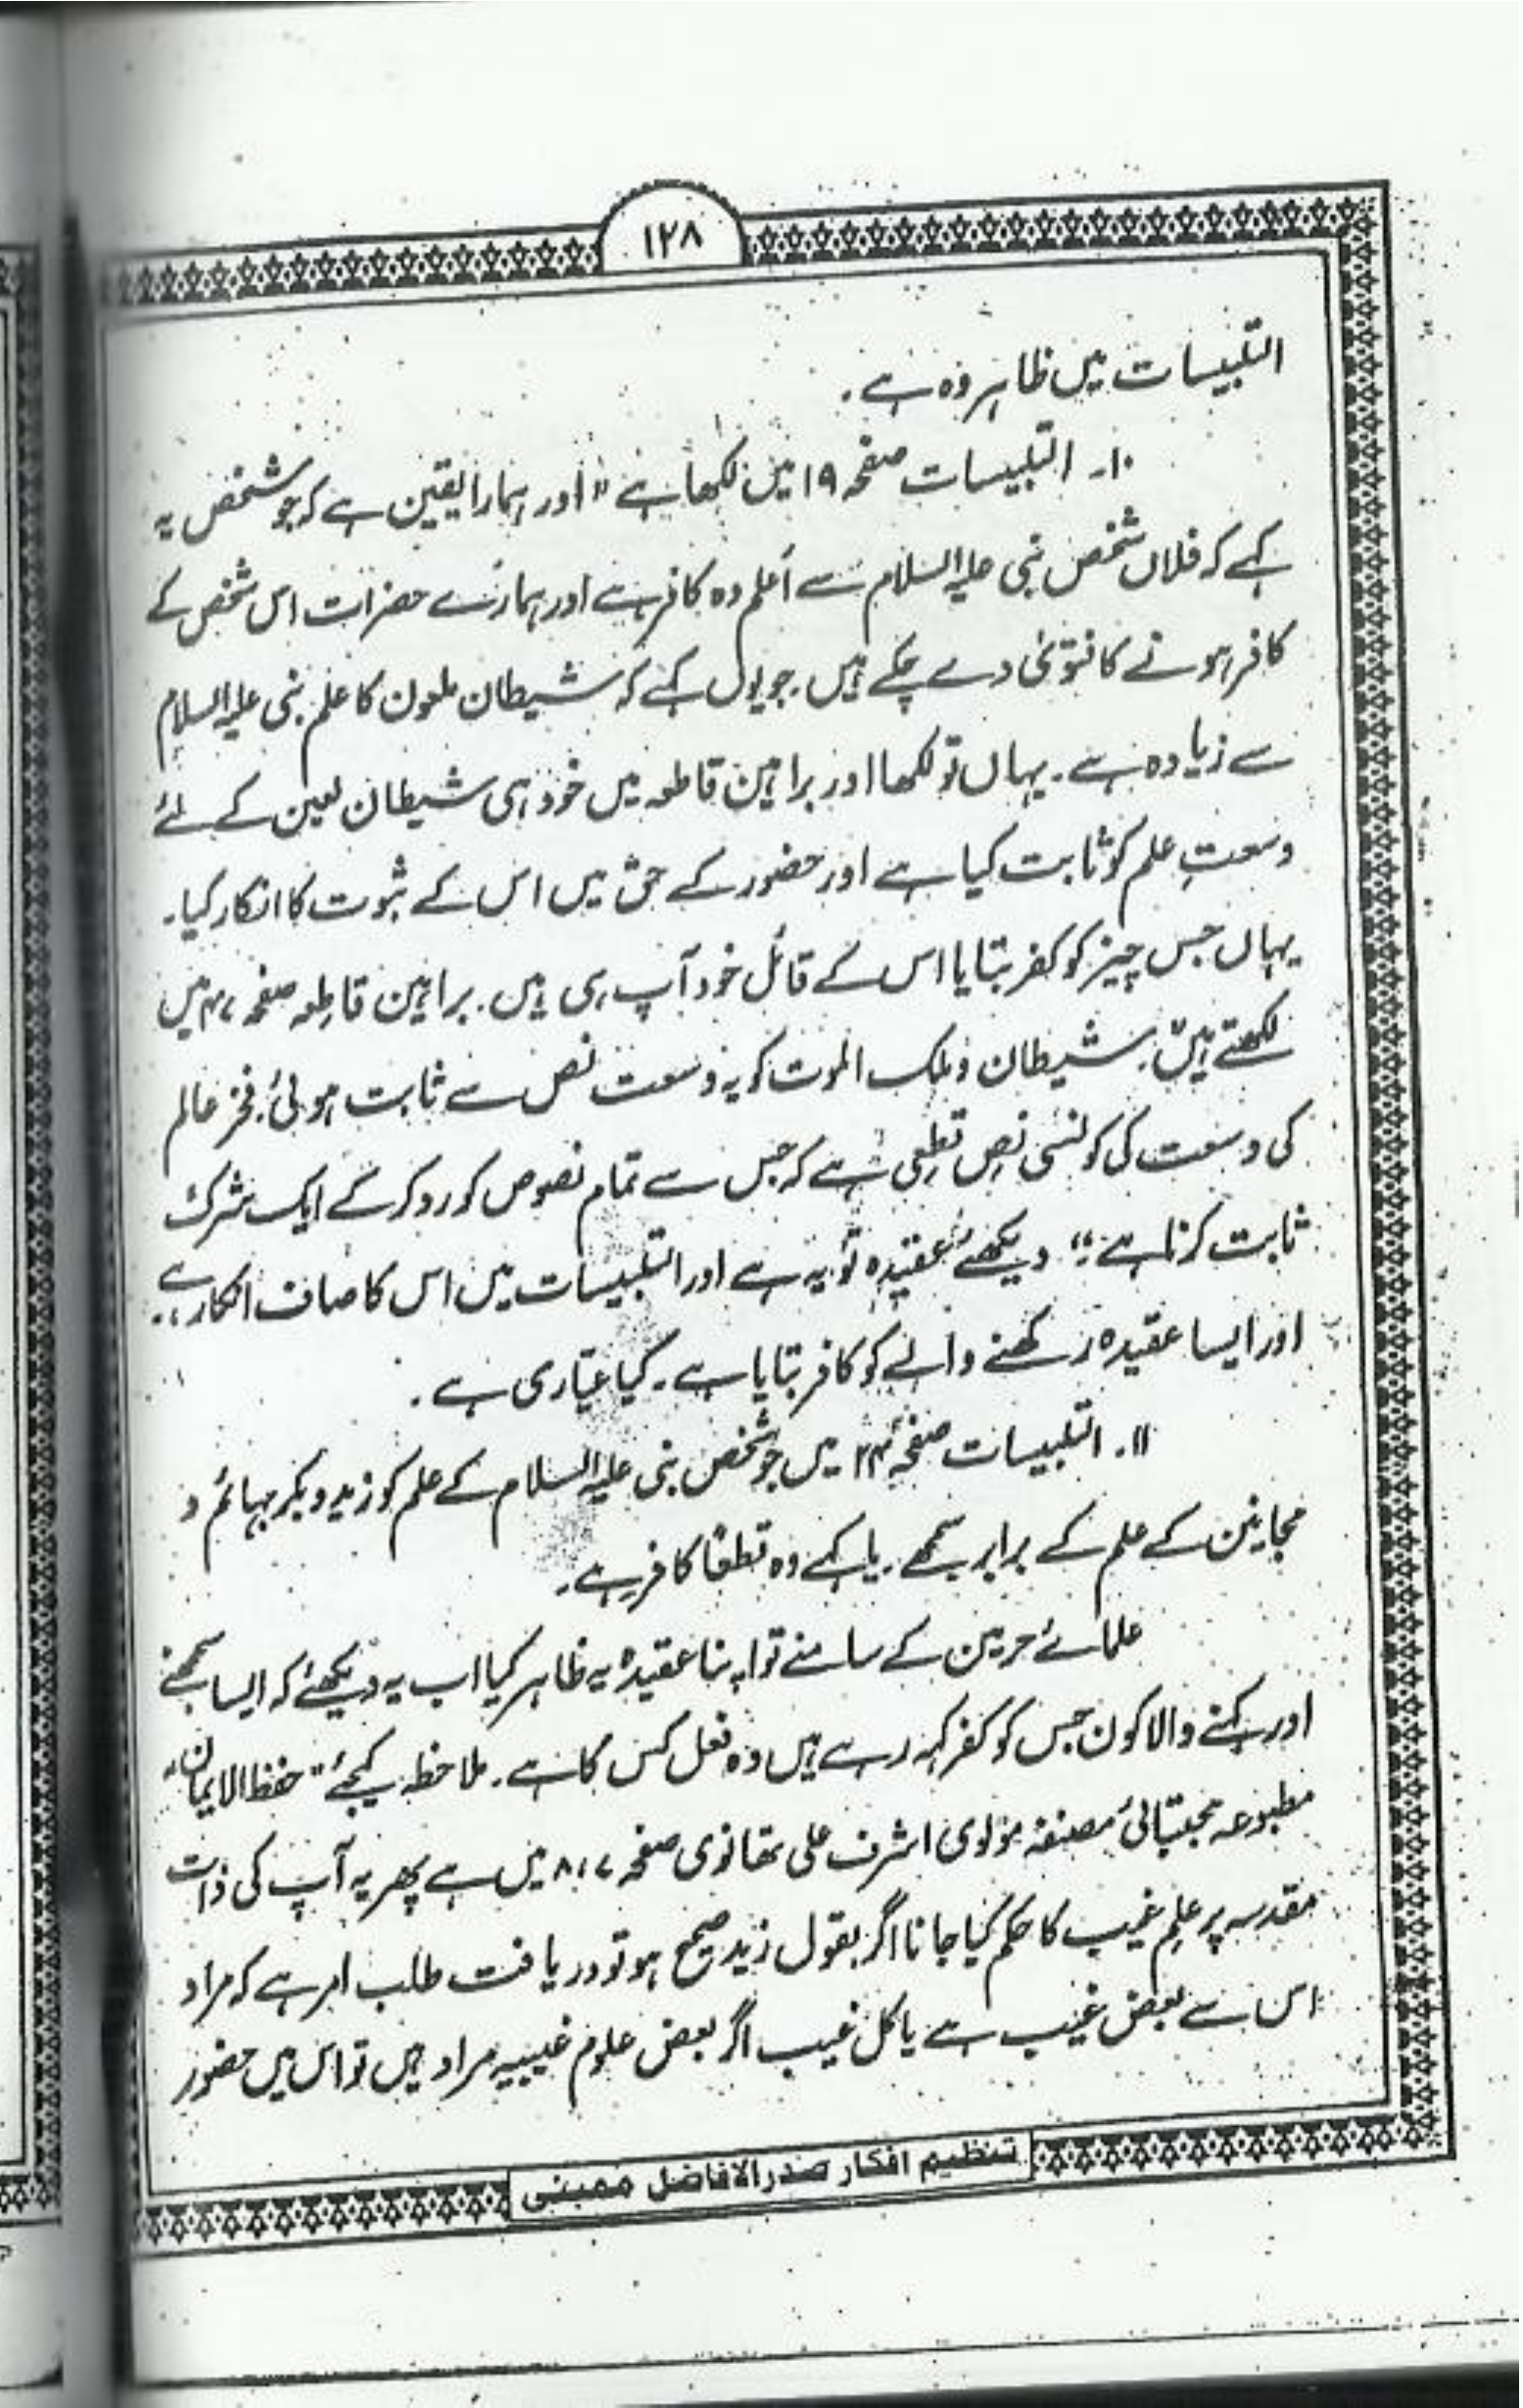 ۱۲۸
التلبیسات میں ظاہر وہ ہے۔
۱۰۔ التلبیسات صفحہ ۱۹ میں لکھا ہے "اور ہمارا یقین ہے کہ جو شخص یہ
کہے کہ فلاں شخص نبی علیہ السلام سے اَعلم وہ کافر ہے اور ہمارے حضرات اس شخص کے
کافر ہونے کا فتوٰی دے چکے ہیں۔ جو یوں کہے کہ شیطان ملعون کا علم نبی علیہ السلام
سے زیادہ ہے۔ یہاں تو لکھا اور براہین قاطعہ میں خود ہی شیطان لعین کے لئے
وسعتِ علم کو ثابت کیا ہے اور حضور کے حق میں اس کے ثبوت کا انکار کیا۔
یہاں جس چیز کو کفر بتایا اس کے قائل خود آپ ہی ہیں۔ براہین قاطعہ صفحہ ۴۷ میں
لکھتے ہیں: شیطان و ملک الموت کو یہ وسعت نص سے ثابت ہوئی۔ فخر عالم
کی وسعت کی کونسی نص قطعی ہے کہ جس سے تمام نصوص کو رد کر کے ایک شرک
ثابت کرتا ہے؛" دیکھئے عقیدہ تو یہ ہے اور التلبیسات میں اس کا صاف انکار ہے۔
اور ایسا عقیدہ رکھنے والے کو کافر بتایا ہے۔ کیا عیّاری ہے۔
۱۱۔ التلبیسات صفحہ ۲۴ میں جو شخص نبی علیہ السلام کے علم کو زید و بکر بہائم و
مجانین کے علم کے برابر سمجھے۔ یا کہے وہ قطعًا کافر ہے۔
علمائے حرمین کے سامنے تو اپنا عقیدہ یہ ظاہر کیا اب یہ دیکھئے کہ ایسا سمجھنے
اور کہنے والا کون جس کو کفر کہہ رہے ہیں وہ فعل کس کا ہے۔ ملاحظہ کیجئے "حفظ الایمان"
مطبوعہ مجتبائی مصنفہ مولوی اشرف علی تھانوی صفحہ ۷،۸ میں ہے پھر یہ آپ کی ذات
مقدسہ پر علمِ غیب کا حکم کیا جانا اگر بقول زید صحیح ہو تو دریافت طلب امر ہے کہ مراد
اس سے بعض غیب ہے یا کل غیب اگر بعض علوم غیبیہ مراد ہیں تو اس میں حضور
تنظیم افکار صدر الافاضل ممبئی